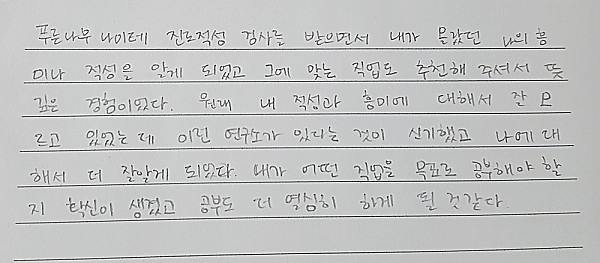 푸른나무 나이테 진로적성 검사를 받으면서 내가 몰랐던 나의 흥
미나 적성을 알게 되었고 그에 맞는 직업도 추천해 주셔서 뜻
깊은 경험이었다. 원래 내 적성과 흥미에 대해서 잘 모
르고 있었는 데 이런 연구소가 있다는 것이 신기했고 나에 대
해서 더 잘알게 되었다. 내가 어떤 직업을 목표로 공부해야 할
지 확신이 생겼고 공부도 더 열심히 하게 될 것같다.